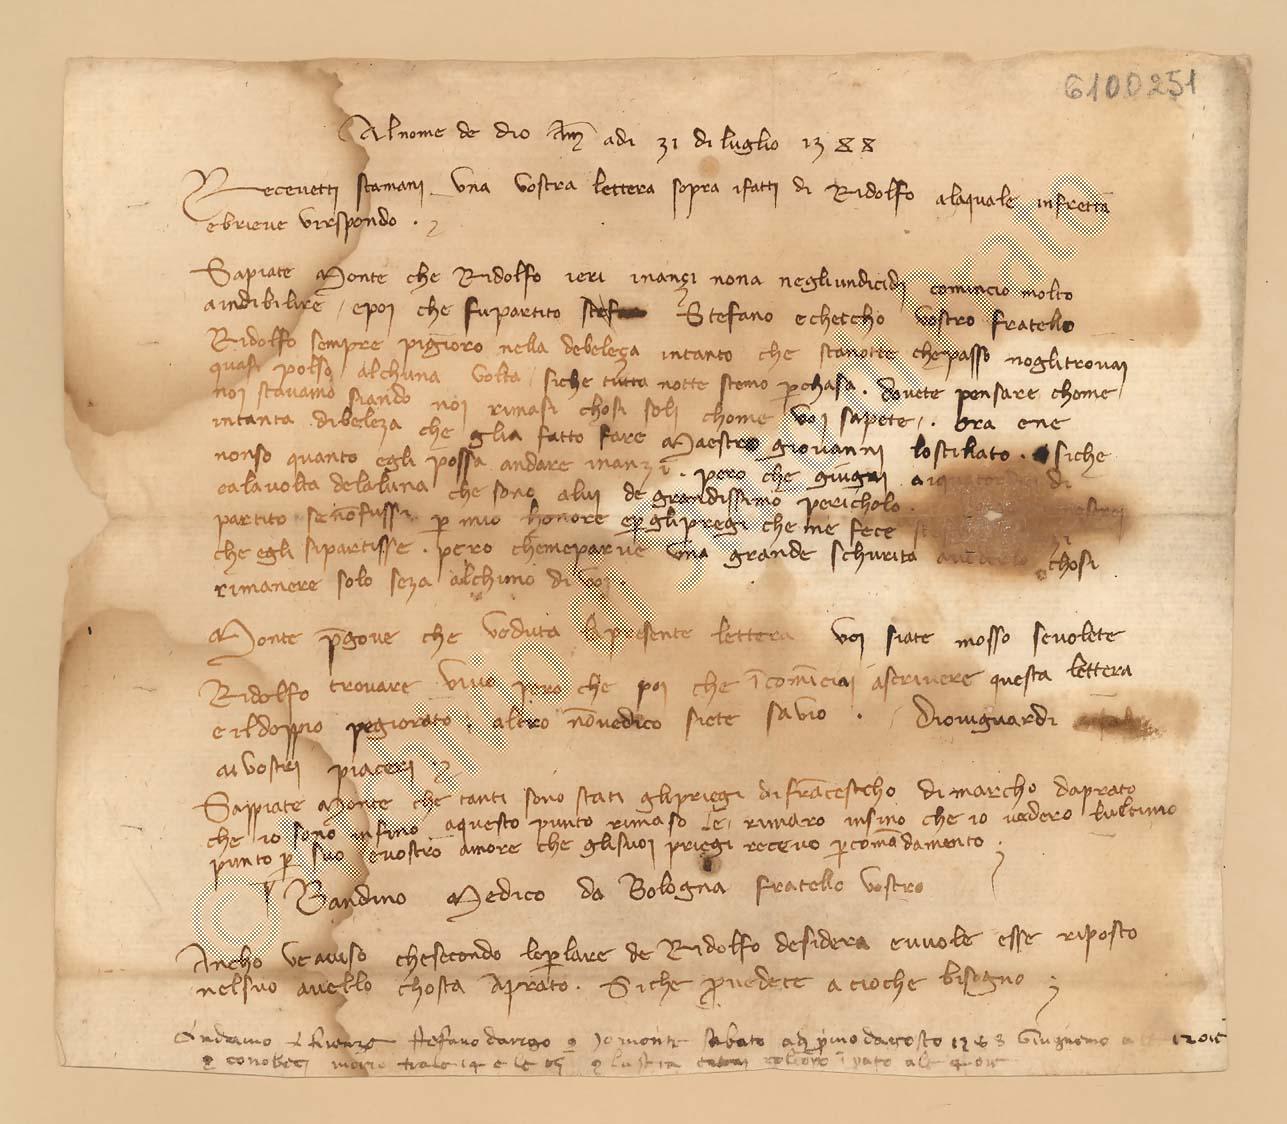 6100251
Al nome de dio Am̃ adi 31 di luglio 1388
Recevetti stamani una vostra lettera sopra ifatti di Ridolfo alaquale infretta
ebrieve virspondo .
Sapiate Monte che Ridolfo ieri inançi nona negliundicidj comincio molto
aindibilire / epoi che fupartito Stefano echeccho vostro fratello
Ridolfo sempre pigioro nella debeleça intanto che stanotte chepasso noglitrovai
quasi polso alchuna volta / siche tutta notte stemo p chasa . dovete pensare chome
noi stavamo siando noi rimasi chosi soli chome voi sapete . Ora ene
intanta dibeleza che glia fatto fare Maestro giovanni lostillato . siche
nonso quanto egli possa andare inanzi . pero che giugni
ealavolta delaluna che sono alui de grandissimo pericholo .
partito senofussi p mio honore ep gli pregi che me fece
che egli sipartisse . pero chemeparve una grande schurita chosi
rimanere solo seza alchuno di voi .
Monte p̃gove che veduta lapresente lettera voi siate mosso sevolete
Ridolfo trovare vivo pero che poi che ĩcomĩciai ascrivere questa lettera
eildoppio pegiorato . altro nõvedico siete savio . Dioviguardi
ai vostri piaceri
Sappiate Monte che tanti sono stati gliprieghi di frãcesscho di marcho daprato
che io sono infino aquesto punto rimaso e rimaro insino che io vedero lultimo
punto p suo evostro amore che glisuoi priegi recevo p comãdamento .
Bandino Medico da Bologna fratello vostro
Ancho ve aviso chesecondo lop̱lare de Ridolfo desidera evuole esse riposto
nelsuo avello chosta Aprato . Siche pvedete acioche bisogno
Andamo Firenze Stefano darigo e Jo monte sabato adj primo dagosto